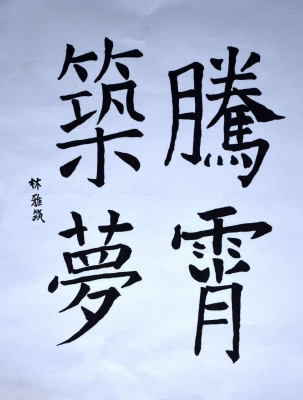 騰霄
築夢
林雅筑